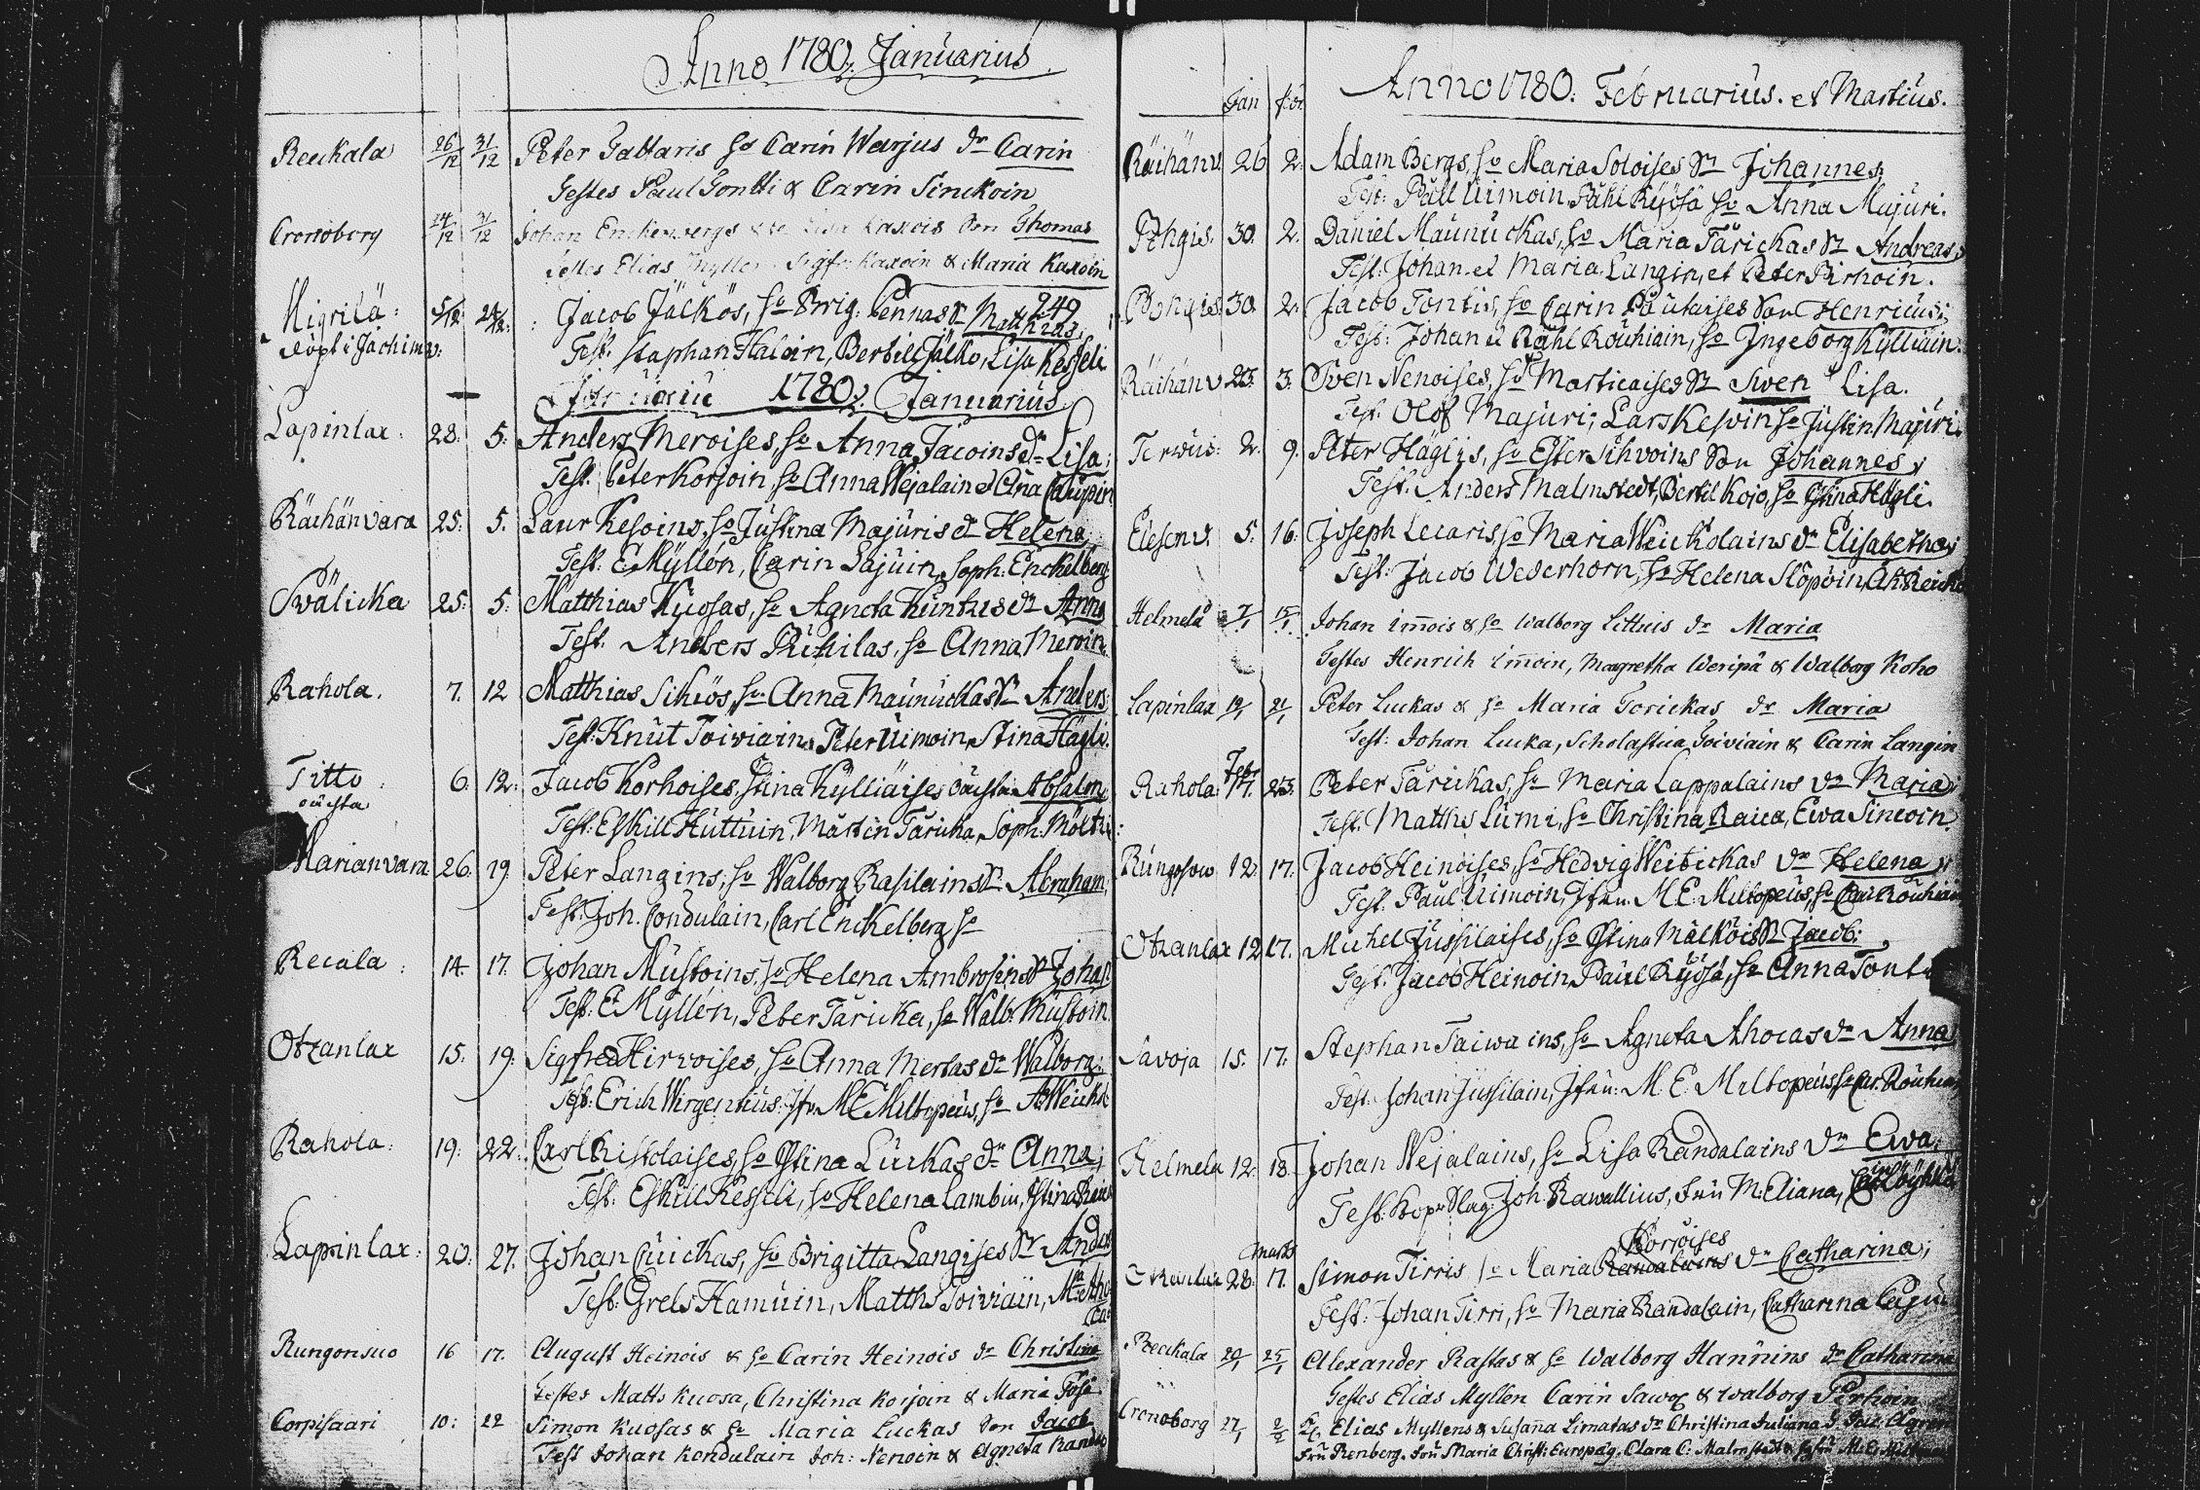 Anno 1780. Januarius
Reickala 26/12 31/12 Peter Tattaris hu Carin Warjus dr Carin
Testes Paul Tontti & Carin Sinckoin
Cronoborg 24/12 31/12 Johan Enckelbergs Kaxois Son Thomas
Testes Elias Myllen Sigfr. Kaxoin & Maria Kaxoin
Migrilä: 5/12 24/12: Jacob Jälkös, hu Brig: Pennas Sr Matthias; 249
döpt i Jachimv: Test: Staphan Haloin, Bertill Jälkö, Lisa Kesseli
1780. Januarius
Lapinlax: 28: 5: Anders Meroises, hu Anna Jacoins dr Lisa;
Test: Peter Korsoin, hu Anna Wejalain &
Räihänvara 25: 5. Laur Kesoins, hu Justina Majuris dr Helena
Test: E. Myllén, Carin Lajuin, Soph: Enckelberg
Swälicka 25: 5: Matthias Kuosas, hu Agneta Kuntus dr Anna
Test. Anders Rihilas, hu Anna Meroin.
Rahola. 7. 12 Matthias Sikiös, hu Anna Maunuckas Sr Anders:
Test: Knut Toiviain, Peter Uimoin, Stina Hägli.
Titto 6. 12: Jacob Korhoises, Stina Kylliäises oächta Absalom
oächta Test: Eskill Huttuin, Mårten Taricka, Soph: Möltti:
Marianvara 26. 19 Peter Langins, hu Walborg Rasilains Sr Abraham;
Test: Joh. Condulain, Carl Enckelberg hu
Reicala: 14. 17. Johan Mustoins, hu Helena Ambrosins Sr Johan
Test: E. Myllén, Peter Taricka, hu Walb: Mustoin.
Otzanlax 15: 19: Sigfred Hirvoises, hu Anna Mertas dr Walborg:
Test: Erich Wirgenius: Jfr. M E Miltopeus, hu
Rahola: 19: 22: Carl Ristolaises, hu Stina Luckas dr Anna;
Test: Eskill Kesseli, hu Helena Lambin, Stina
Lapinlax: 20: 27. Johan Cuickas, hu Brigitta Langises Sr Anders
Test: Grels Hamuin, Matths Toiviain,
Rungonsuo 16 17. August Heinois & hu Carin Heinois dr Christina
Testes Matts Kuosa, Christina Korjoin & Maria
Corpisaari 10: 22 Simon Kuosas & hu Maria Luckas Son Jacob
Test Johan Kondulain Joh: Nenoin & Agneta
Jan feb. Anno 1780. Februarius. et Martius.
Räihänv. 26 2. Adam Bergs, hu Maria Soloises Sn Johannes;
Test: Påll Uimoin, Påhl Ryösä hu Anna Majuri.
Pohgis. 30. 2. Daniel Maunuckas, hu Maria Tarickas Sr Andreas;
Test: Johan et Maria Langin, et Peter Pirhoin.
Pohgis 30. 2. Jacob Tontis, hu Carin Pautaises Son Henricus;
Test: Johan & Påhl Rouhiain, hu Ingeborg Kylliäin.
Räihänv 23. 3. Sven Nenoises, hu Marticaises Sr Swen Lisa.
Test: Olof Majuri; Lars Kesoin hu Justin Majuri.
Terwus: 2. 9. Peter Häglis, hu Ester Sihvoins Son Johannes;
Test: Anders Malmstedt, Bertil Kojo, hu Stina Hägli.
Elisenv. 5. 16: Joseph Lecaris, hu Maria Weickolains dr Elisabetha;
Test: Jacob Wederhorn, hu Helena
Helmelä 7/1 15/1 Johan Immois & hu Walborg Littuis dr Maria
Testes Henrich Immoin, Margretha Weripä & Walborg Koho
Lapinlax 19/1 21/1 Peter Luckas & hu Maria Torickas dr Maria
Test: Johan Lucka, Scholastica Toiviain & Carin Langin
Rahola: Febr 17. 23. Peter Tarickas, hu Maria Lappalains dr Maria;
Test: Matths Lumi, hu Christina Raica, Ewa Sincoin.
Rungosuo. 12. 17. Jacob Heinoises, hu Hedvig Weitickas dr Helena;
Test: Paul Uimoin, Jfru. M. E: Miltopeus, hu
Otzanlax 12 17. Michel Jussilaises, hu Stina Mälköis Sr Jacob;
Test: Jacob Heinoin, Paul Ryösä, hu Anna Tont
Savoja 15. 17. Stephan Taiwains, hu Agneta Ahocas dr Anna
Test: Johan Jussilain, Jfru: M. E. Miltopeus,
Helmela 12. 18. Johan Wejalains, hu Lisa Randalains dr Ewa;
Test: Joh: Rawallius, fru M: Eliana,
Marts Korsoises
28. 17. Simon Tirris hu Maria Randalains dr Catharina;
Test: Johan Tirri, hu Maria Randalain, Catharina
Reickala 20/1 25/1 Alexander Rastas & hu Walborg Hannins dr Catharina
Testes Elias Myllen Carin & Walborg Pirhoin
Cronoborg 27/1 2/2 Elias Myllens & Susanna Limatas dr Christina Juliana
Fru Renberg. Fru Maria Christ: Europäg. Clara C: Malmstedt &